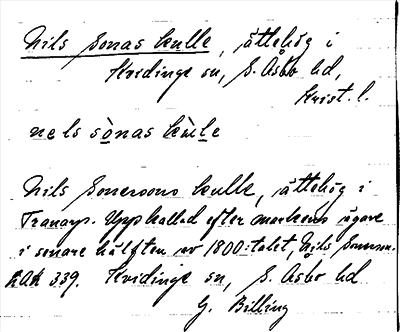 Nils Sonas kulle, ättehög i
Kvidinge sn, S. Åsbo hd,
Krist. l.
nels sònas kùle
Nils Sonesons kulle, ättehög i
Tranarp. Uppkallad efter markens ägare
i senare hälften av 1800-talet, Nils Soneson.
RAÄ 339. Kvidinge sn, S. Åsbo hd
G. Billing